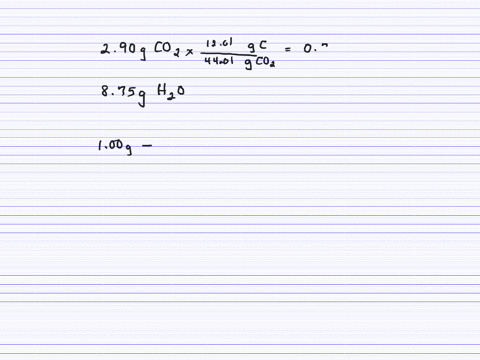 2.90g CO2 × 12.01 g C / 44.01 g CO2 = 0.
8.75g H2O
1.00g –